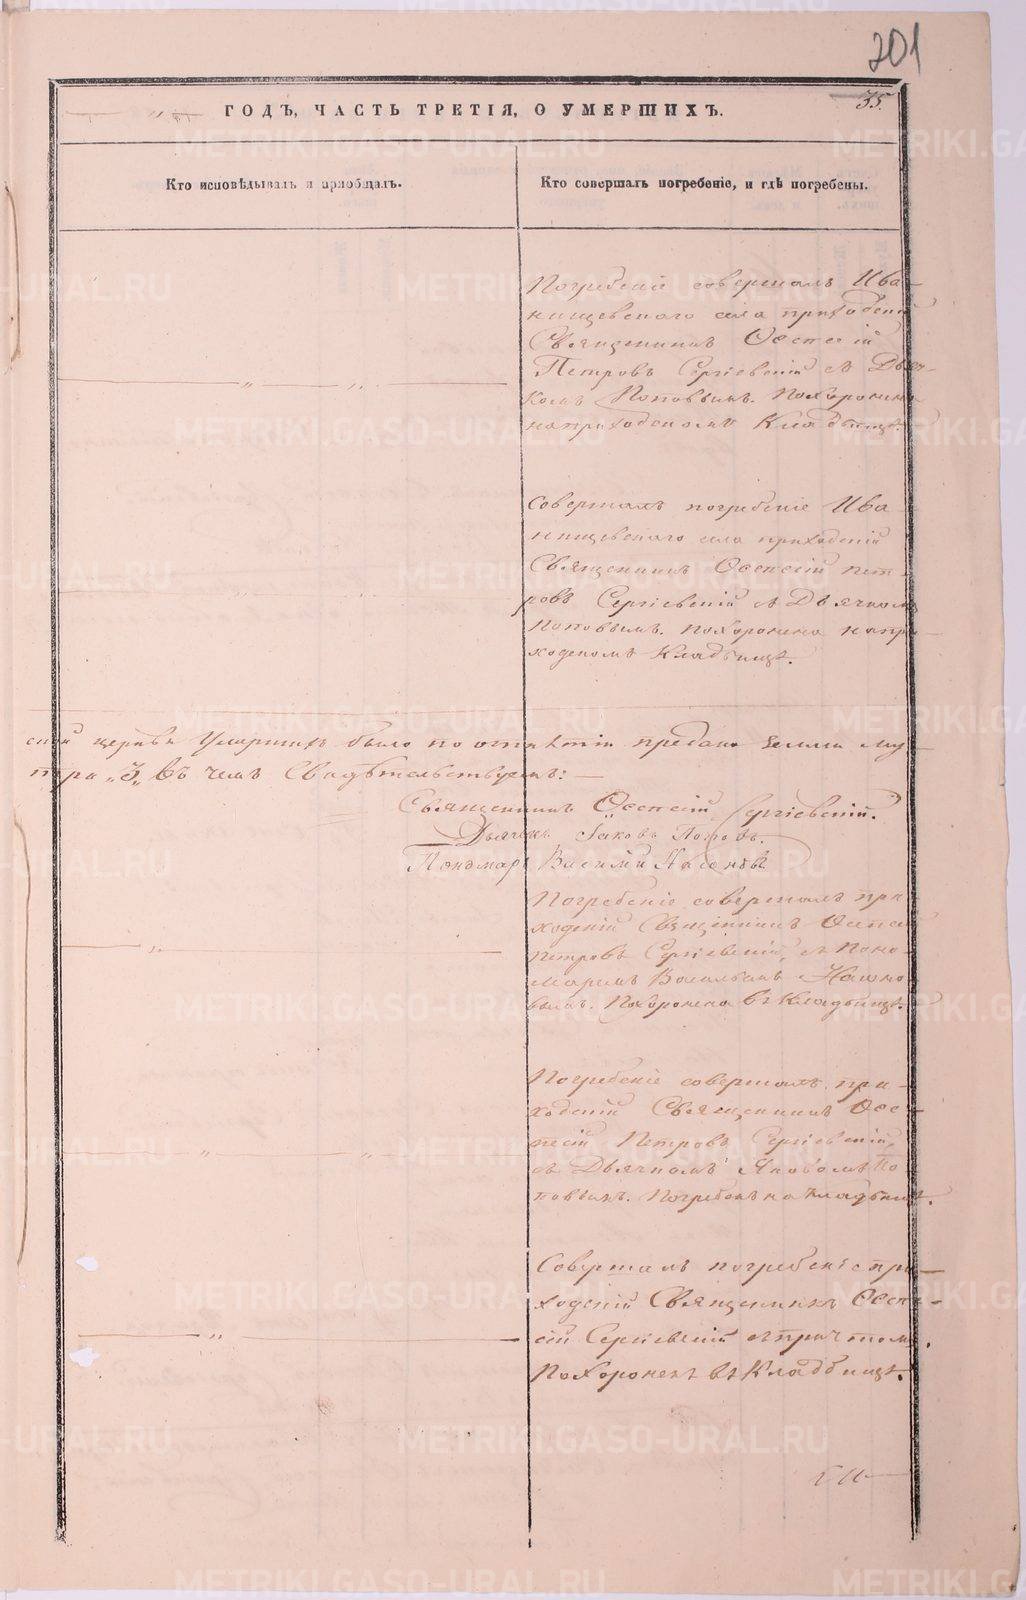 201
35.
ГОДЪ, ЧАСТЬ ТРЕТІЯ, О УМЕРШИХЪ.
Кто исповѣдывалъ и пріобщалъ.
Кто совершалъ погребеніе, и гдѣ погребены.
Погребеніе совершалъ Ива-
нищевскаго села приходскій
Священникъ Евсевій
Петровъ Сергіевскій съ Дьяч-
комъ Поповымъ. Похоронена
на приходскомъ Кладбищѣ.
Совершалъ погребеніе Ива-
нищевскаго села приходскій
Священникъ Евсевій Пет-
ровъ Сергіевскій съ Дьячкомъ
Поповымъ. Похоронена на при-
ходскомъ Кладбищѣ.
ской церкви Умершихъ было по отпѣтіи предано земли му-
„3„ въ чемъ Свидѣтельствуемъ:
Священникъ Сергіевскій.
Дьячекъ Іаковъ Поповъ.
Пономарь Василій
Погребеніе совершалъ при-
ходскій Священникъ
Петровъ Сергіевскій, съ Поно-
маремъ Васильемъ
Похоронена въ Кладбищѣ.
Погребеніе совершалъ при-
ходскій Священникъ Евс-
Петровъ Сергіевскій,
съ Дьячкомъ Яковомъ По-
повымъ. Погребенъ на Кладбищѣ.
Совершалъ погребеніе при-
ходскій Священникъ
Сергіевскій съ причтомъ.
Похороненъ въ Кладбищѣ.
METRIKI.GASO-URAL.RU